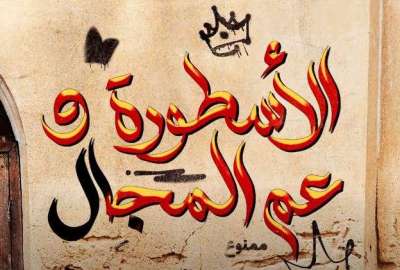 الأسطورة و
عم المجال
ممنوع